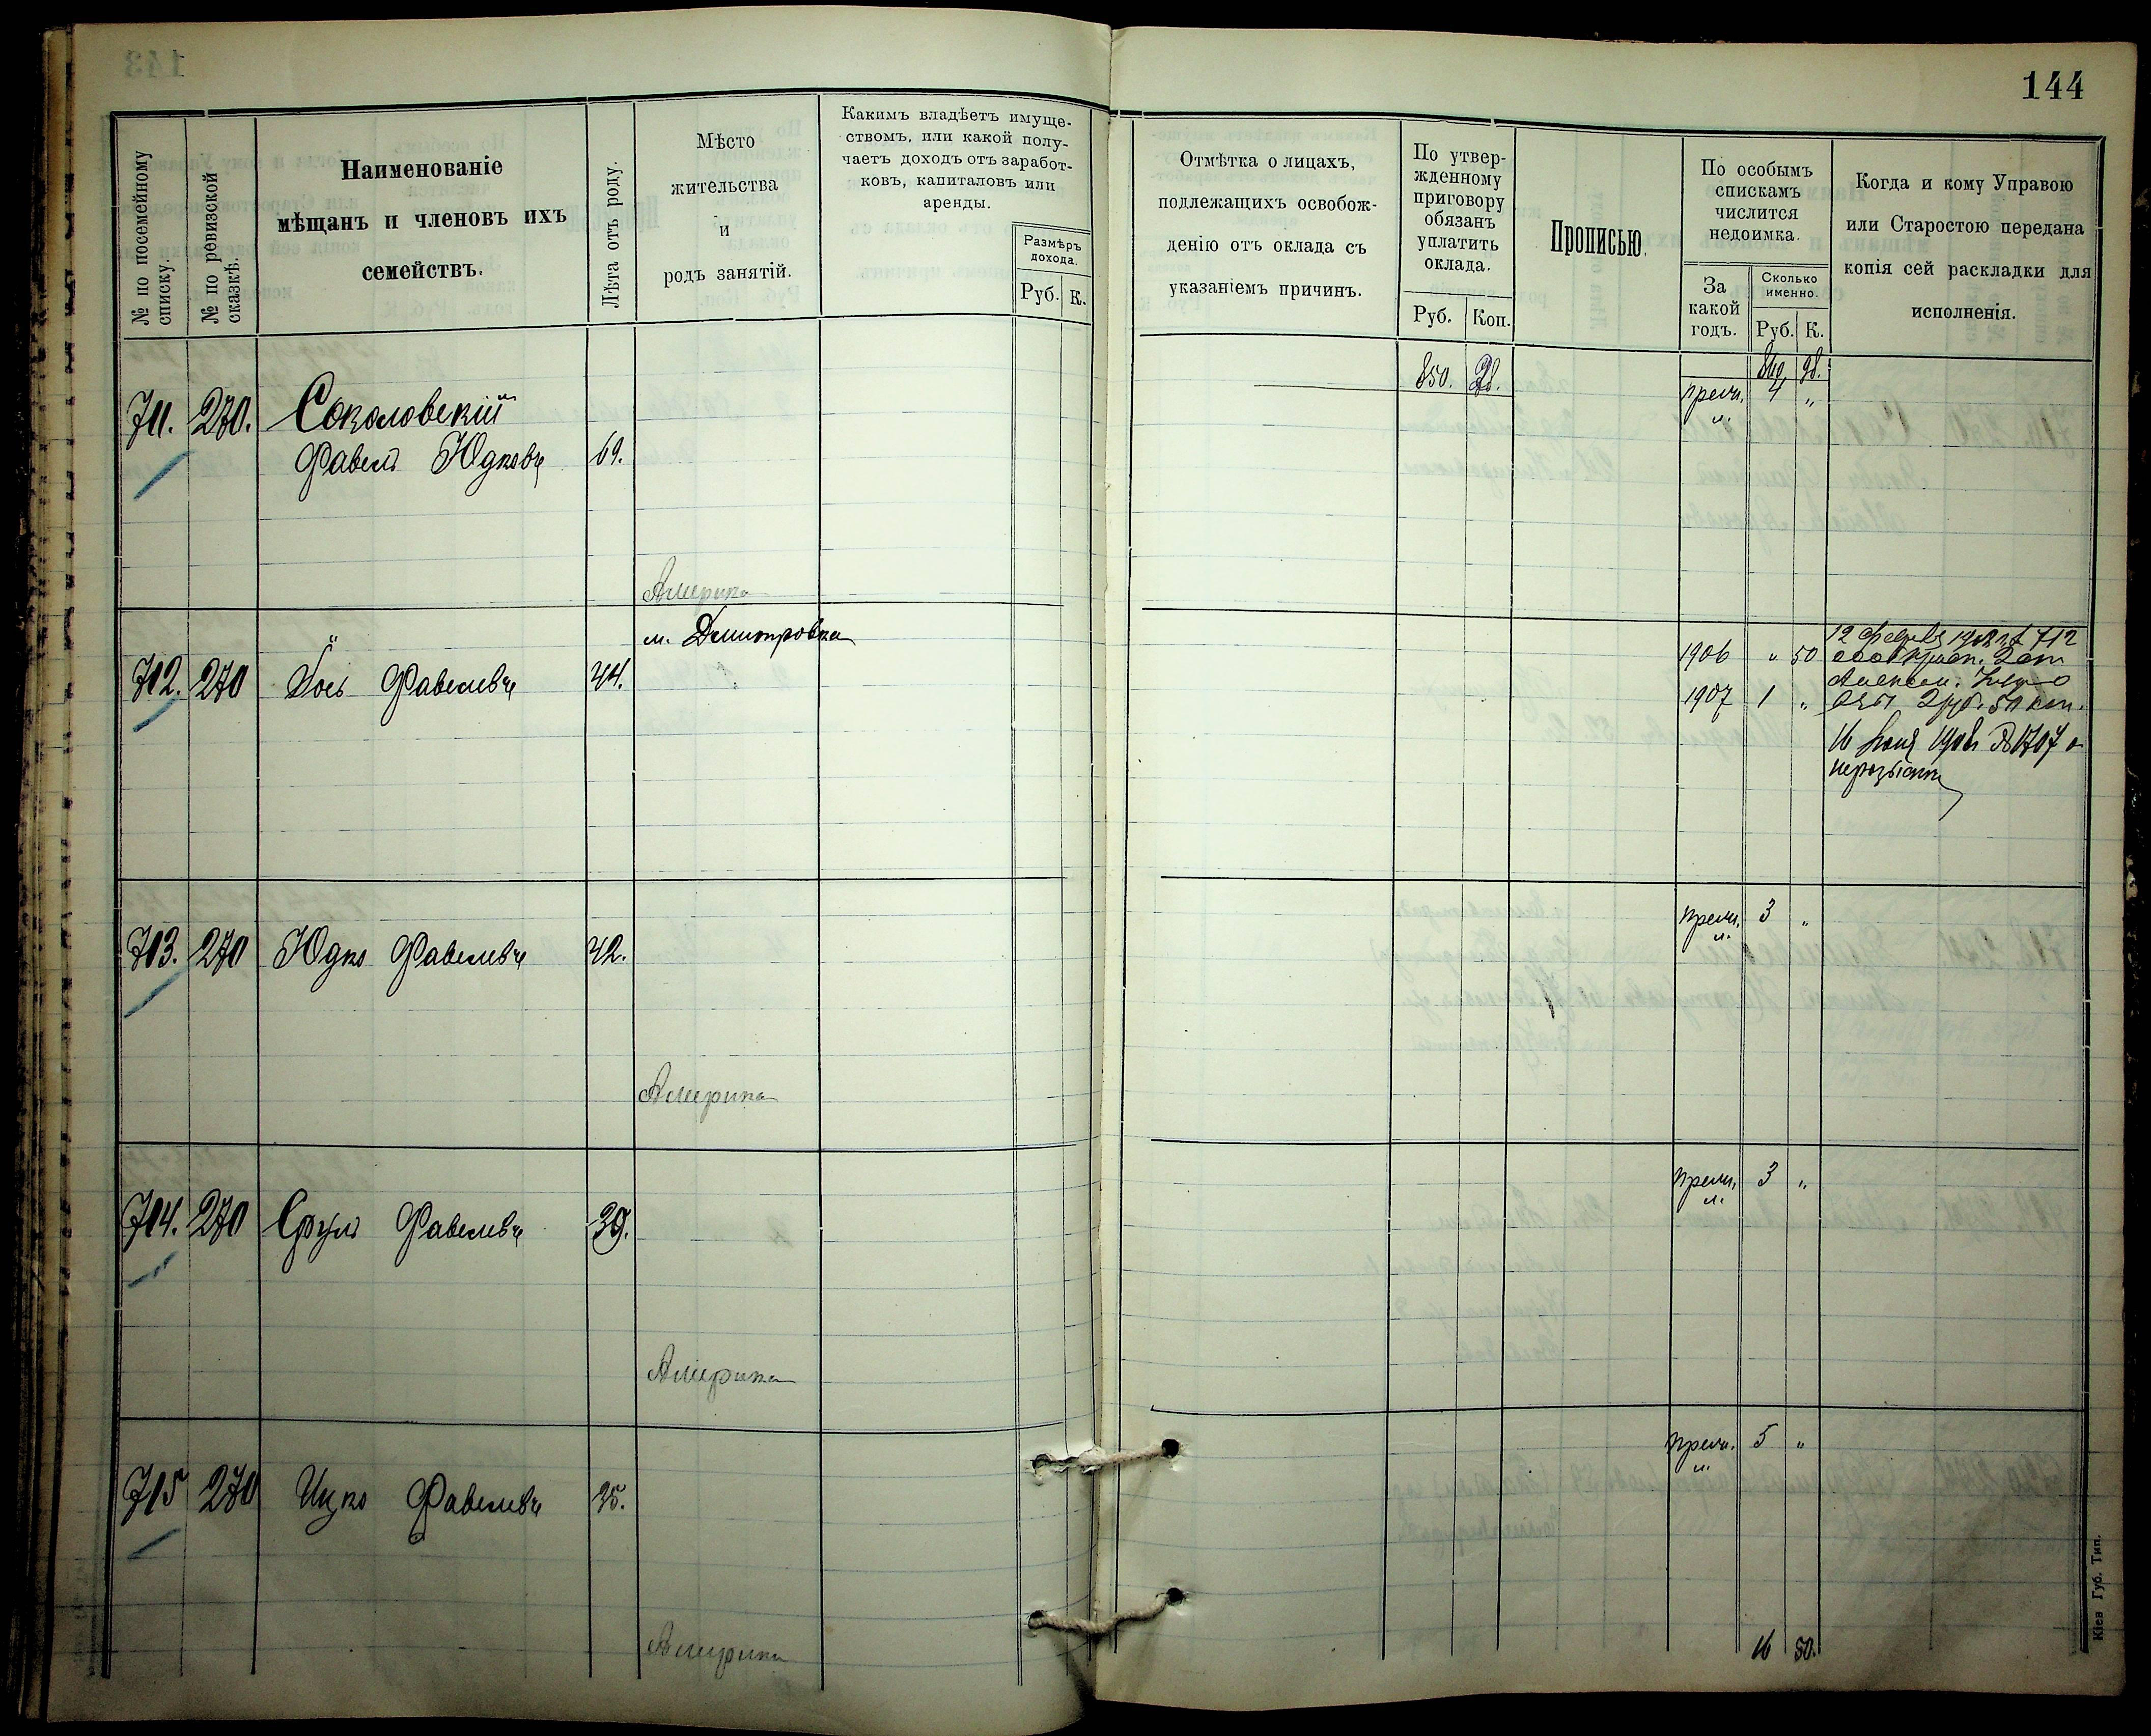 144
№ по посемейному
списку.
№ по ревизской
сказкѣ.
Наименованіе
мѣщанъ и членовъ ихъ
семействъ.
Лѣта отъ роду.
Мѣсто
жительства
и
родъ занятій.
Какимъ владѣетъ имуще-
ствомъ, или какой полу-
чаетъ доходъ отъ заработ-
ковъ, капиталовъ или
аренды.
Размѣръ
дохода.
Руб. К.
Отмѣтка о лицахъ,
подлежащихъ освобож-
денію отъ оклада съ
указаніемъ причинъ.
По утвер-
жденному
приговору
обязанъ
уплатить
оклада.
Руб. Коп.
Прописью.
По особымъ
спискамъ
числится
недоимка.
За
какой
годъ.
Сколько
именно.
Руб. К.
Когда и кому Управою
или Старостою передана
копія сей раскладки для
исполненія.
850.
711. 270. Соколовскій
Фавель Юдковъ 69.
прем. 4 "
л.
Америка
м. Дмитровка
712. 270 Фавелевъ 44.
1906 " 50
1907 1 "
12 712
2 руб. 50 коп.
16 1908 № 1707 о
713. 270 Юдко Фавелевъ 42.
прем. 3 "
л.
Америка
714. 270 Сруль Фавелевъ 39.
прем. 3 "
л.
Америка
715 270 Ицко Фавелевъ 35.
прем. 5 "
л.
Америка
16 50.
Кіев Губ. Тип.